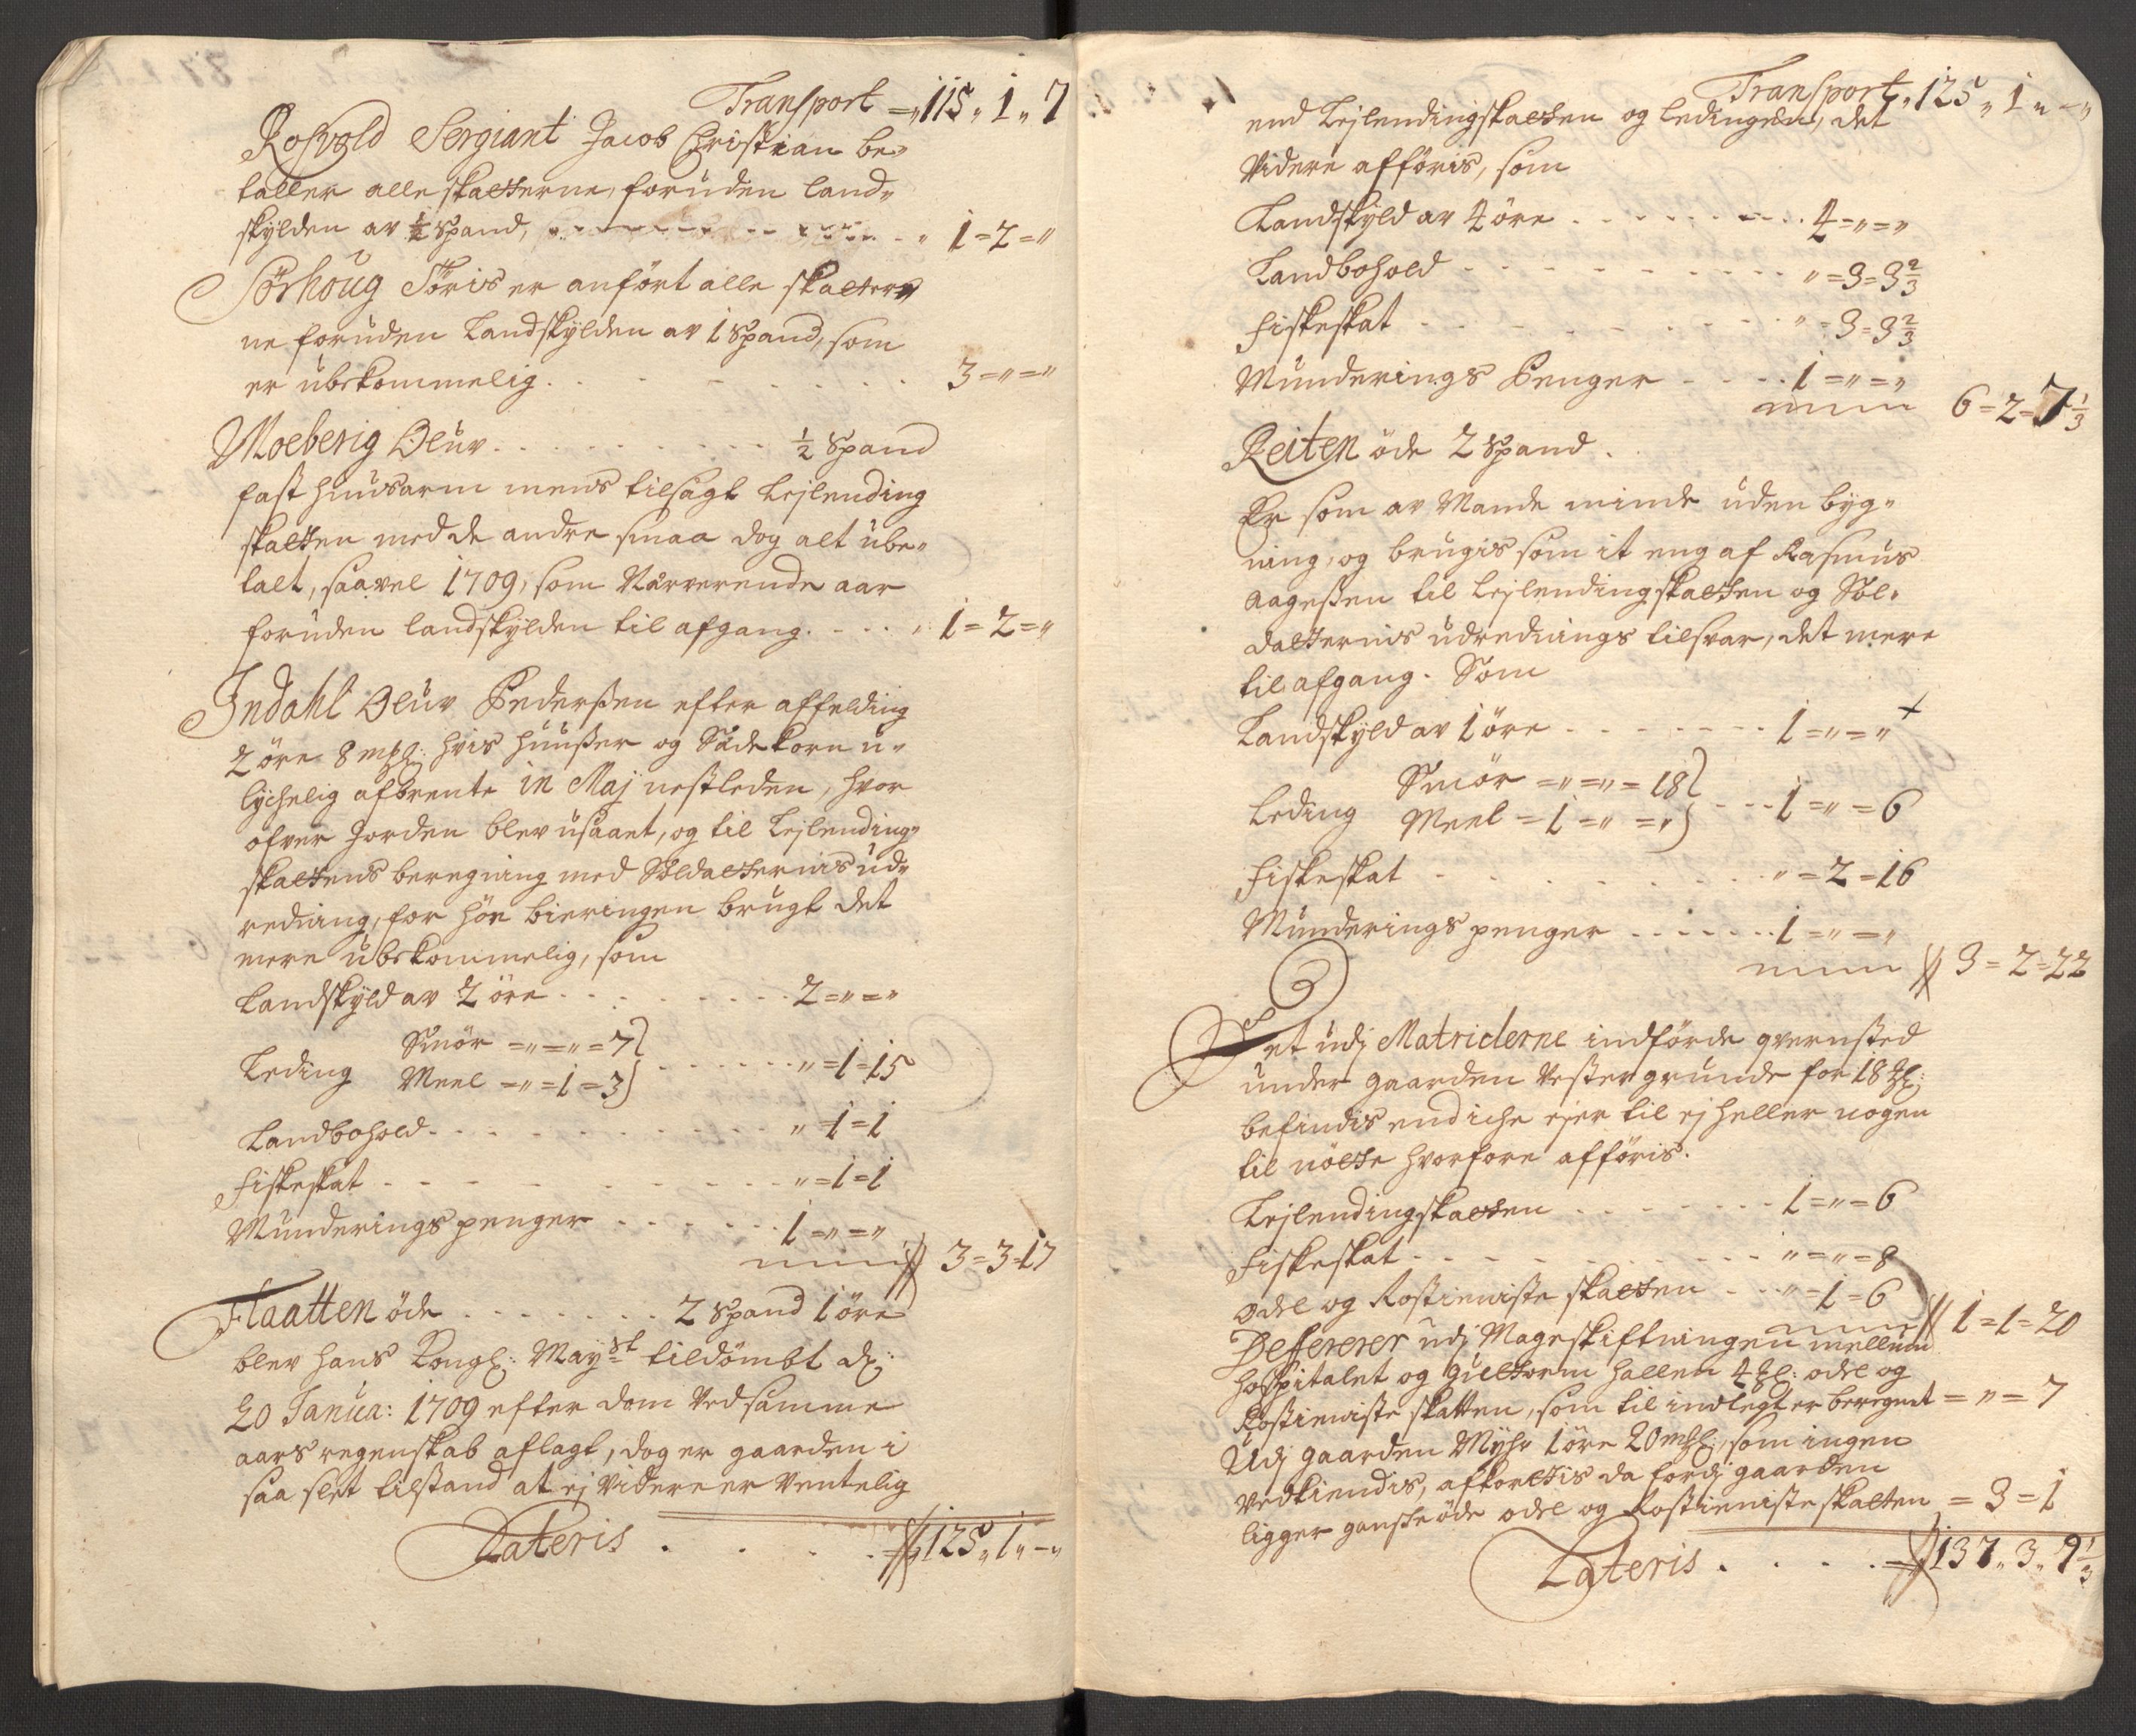 Transport =„ 115„ 1„ 7
Rosvold Sergiant Jacob Christian be„
taller alle skatterne, foruden land„
skylden av ½ Spand, . . . . . „ 1=2=„
Sørhoug Tøris er anført alle skatter„
ne foruden Landskylden av 1 Spand, som
er ubekommelig . . . . . 3=„=„
Moeberig Oluv . . . . . ½ Spand
fast huusarm mens tilsagt Lejlending
skatten med de andre smaa dog alt ube„
talt, saavel 1709, som Nærverende aar
foruden landskylden til afgang . . . „ 1=2=„
Indahl Oluv Pedersen efter affelding
2 öre 8 mhl: hvis huusser og Sædekorn u„
lychelig afbrente in Maj nestleden, hvor
ofver Jorden blev usaaet, og til Lejlending„
skattens beregning med Soldatternis ud„
reding, for høe bieringen brugt det
mere ubekommelig, som
Landskyld av 2 öre . . . . . 2=„=„
Leding Smör =„=„=7
Meel =„=1=3 . . . . „=1=15
Landbohold . . . . . „=1=1
Fiskeskat . . . . . „=1=1
Munderings penger . . . . . 1=„=„
3=3=17
Flaatten öde . . . . . 2 Spand 1 öre
blev hans Kongl: Mayst tildömbt d:
20 Janua: 1709 efter dom Ved samme
aars regenskab aflagt, dog er gaarden i
saa slet tilstand at ej videre er Ventelig
Lateris . . . . 125„ 1„ –„
Transport„ 125„ 1„ –„
end Lejlendingskatten og ledingen, det
Videre afføris, som
Landskyld av 4 öre . . . . . 4=„=„
Landbohold . . . . . „=3=3⅔
Fiskeskat . . . . . „=3=3⅔
Munderings Penger . . . . 1=„=„
6=2=7⅓
Reiten öde 2 Spand .
Er som av Mands minde uden byg„
ning, og brugis som it eng af Rasmus
Aagessen til Lejlendingskatten og Sol„
datternis udrednings tilsvar, det mere
til afgang. Som
Landskyld av 1 öre . . . . . 1=„=„
Leding Smör =„=„=18
Meel =1=„=„ . . . 1=„=6
Fiskeskat . . . . . „=2=16
Munderings penger . . . . . 1=„=„
3=2=22
Det udj Matriclerne indførde qvernsted
under gaarden Vestergrunde for 18 hl:
befindis end iche ejer til ej heller nogen
til nötte hvorfore afføris.
Lejlendingskatten . . . . . 1=„=6
Fiskeskat . . . . . „=„=8
Odel og Rostieniste skatten . . „=1=6
1=1=20
Desferer udj Mageskiftningen mellum
Hospitalet og Guttorm Hallem 4 hl: odel og
Rostieniste skatten, som til indlegt er beregnet =„=7
Udj gaarden Myhr 1 öre 20 mhl:, som ingen
vedkiendis, afkortis da fordj gaarden
ligger ganske öde odel og Rostieniste skatten =3=1
Lateris . . . . 137„ 3„ 9⅓